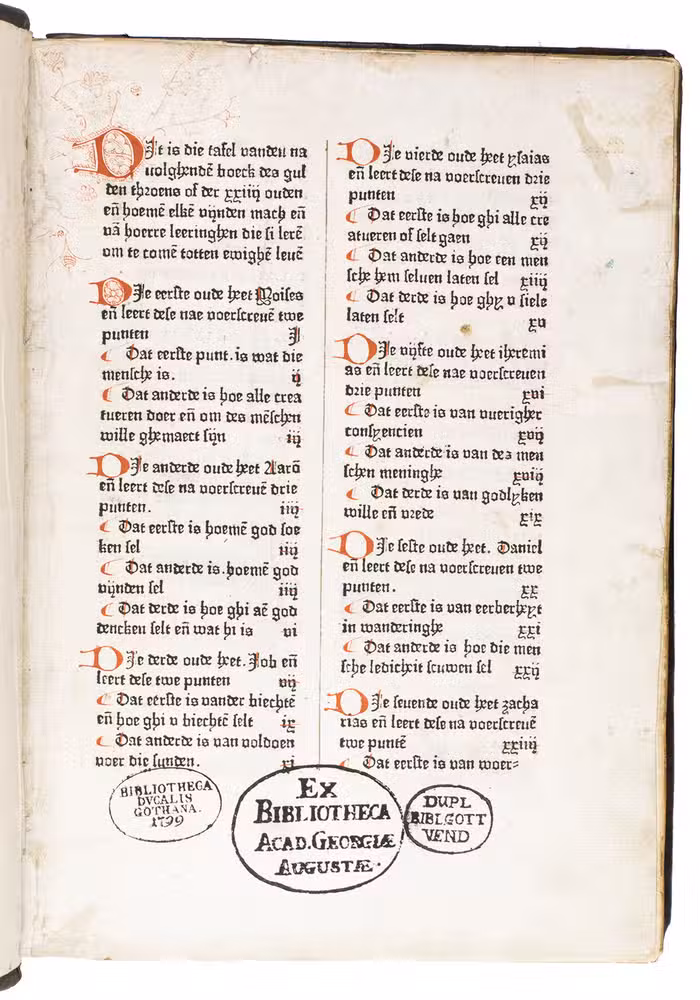 DJt is die tafel vanden na
uolghendē boeck des gul
den throens of der xxiiij ouden
en̄ hoemē elkē vijnden mach en̄
vā hoerre leeringhen die si lerē
om te comē totten ewighē leuē
DJe eerste oude heet Moises
en̄ leert dese nae voerscreuē twe
punten j
⸿ Dat eerste punt. is wat die
mensche is. ij
⸿ Dat anderde is hoe alle crea
tueren doer en̄ om des mēschen
wille ghemaect sijn iij
DJe anderde oude heet Aarō
en̄ leert dese na voerscreuē drie
punten. iiij
⸿ Dat eerste is hoemē god soe
ken sel iiij
⸿ Dat anderde is. hoemē god
vijnden sel iiij
⸿ Dat derde is hoe ghi aē god
dencken selt en̄ wat hi is vi
DJe derde oude heet. Job en̄
leert dese twe punten vij
⸿ Dat eerste is vander biechtē
en̄ hoe ghi v biechtē selt ix
⸿ Dat anderde is van voldoen
voer die sunden. xi
DJe vierde oude heet ysaias
en̄ leert dese na voerscreuen drie
punten xij
⸿ Dat eerste is hoe ghi alle cre
atueren of selt gaen xij
⸿ Dat anderde is hoe een men
sche hem seluen laten sel xiiij
⸿ Dat derde is hoe ghy v siele
laten selt xv
DJe vijfte oude heet iheremi
as en̄ leert dese nae voerscreuen
drie punten xvi
⸿ Dat eerste is van vueригher
consyencien xvij
⸿ Dat anderde is van des men
schen meninghe xviij
⸿ Dat derde is van godlyken
wille en̄ vrede xix
DJe seste oude heet. Daniel
en̄ leert dese na voerscreuen twe
punten. xx
⸿ Dat eerste is van eerberheyt
in wanderinghe xxi
⸿ Dat anderde is hoe die men
sche ledicheit scuwen sel xxij
DJe seuende oude heet zacha
rias en̄ leert dese na voerscreuē
twe puntē xxiiij
⸿ Dat eerste is van woer=
BIBLIOTHECA
DVCALIS
GOTHANA.
1799
EX
BIBLIOTHECA
ACAD. GEORGIÆ
AUGUSTÆ.
DUPL
BIBL.GOTT
VEND